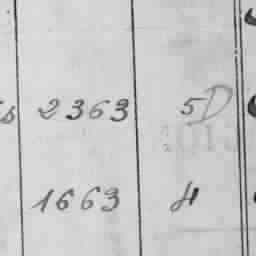 2363 5D
1663 4